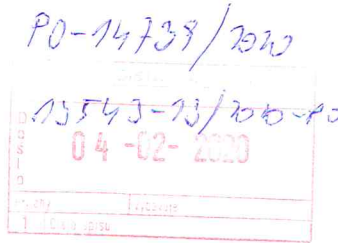 PO-14739/2020
13543-13/2020-PO
DOŠLO
04 -02- 2020
Prílohy
Vybavuje
1
Číslo spisu